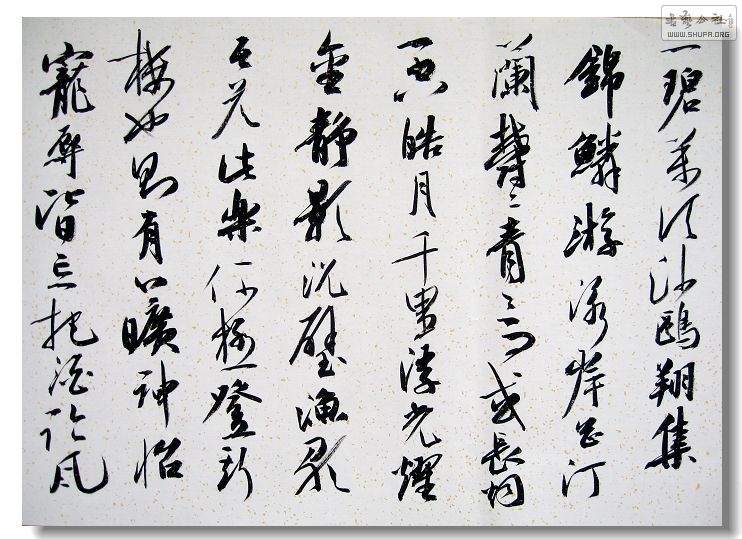 一碧萬頃沙鷗翔集
錦鱗游泳岸芷汀
蘭欝〻青〻而或長烟
一空皓月千里浮光耀
金靜影沉璧漁歌
互答此樂何極登斯
樓也則有心曠神怡
寵辱皆忘把酒臨風
書藝公社
WWW.SHUFA.ORG